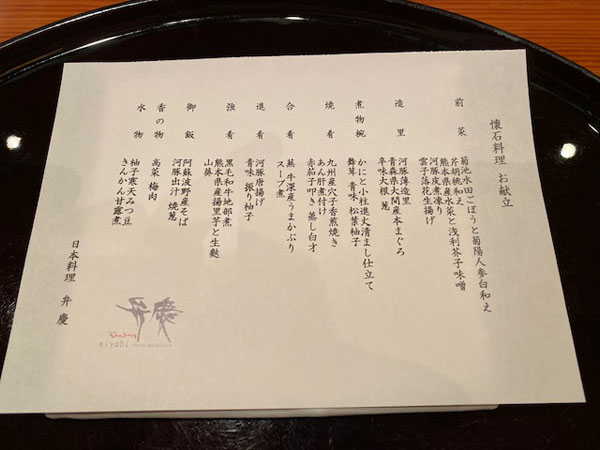 懐石料理 お献立
前菜
菊池水田ごぼうと菊陽人参白和え
芹胡桃和え
熊本県産水菜と浅利芥子味噌
河豚皮煮凍り
雲子落花生揚げ
造里
河豚薄造里
青森県大間産本まぐろ
辛味大根 葱
煮物椀
かにと小柱進丈清まし仕立て
舞茸 青味 松葉柚子
焼肴
九州産穴子香煎焼き
あん肝煮付け
赤茄子叩き 蒸し白才
合肴
蕪 牛深産うまかぶり
スープ煮
進肴
河豚唐揚げ
青味 振り柚子
強肴
黒毛和牛地部煮
熊本県産揚里芋と生麩
山葵
御飯
阿蘇波野産そば
河豚出汁 焼葱
香の物
高菜 梅肉
水物
柚子寒天みつ豆
きんかん甘露煮
日本料理 弁慶
弁慶
miyabi